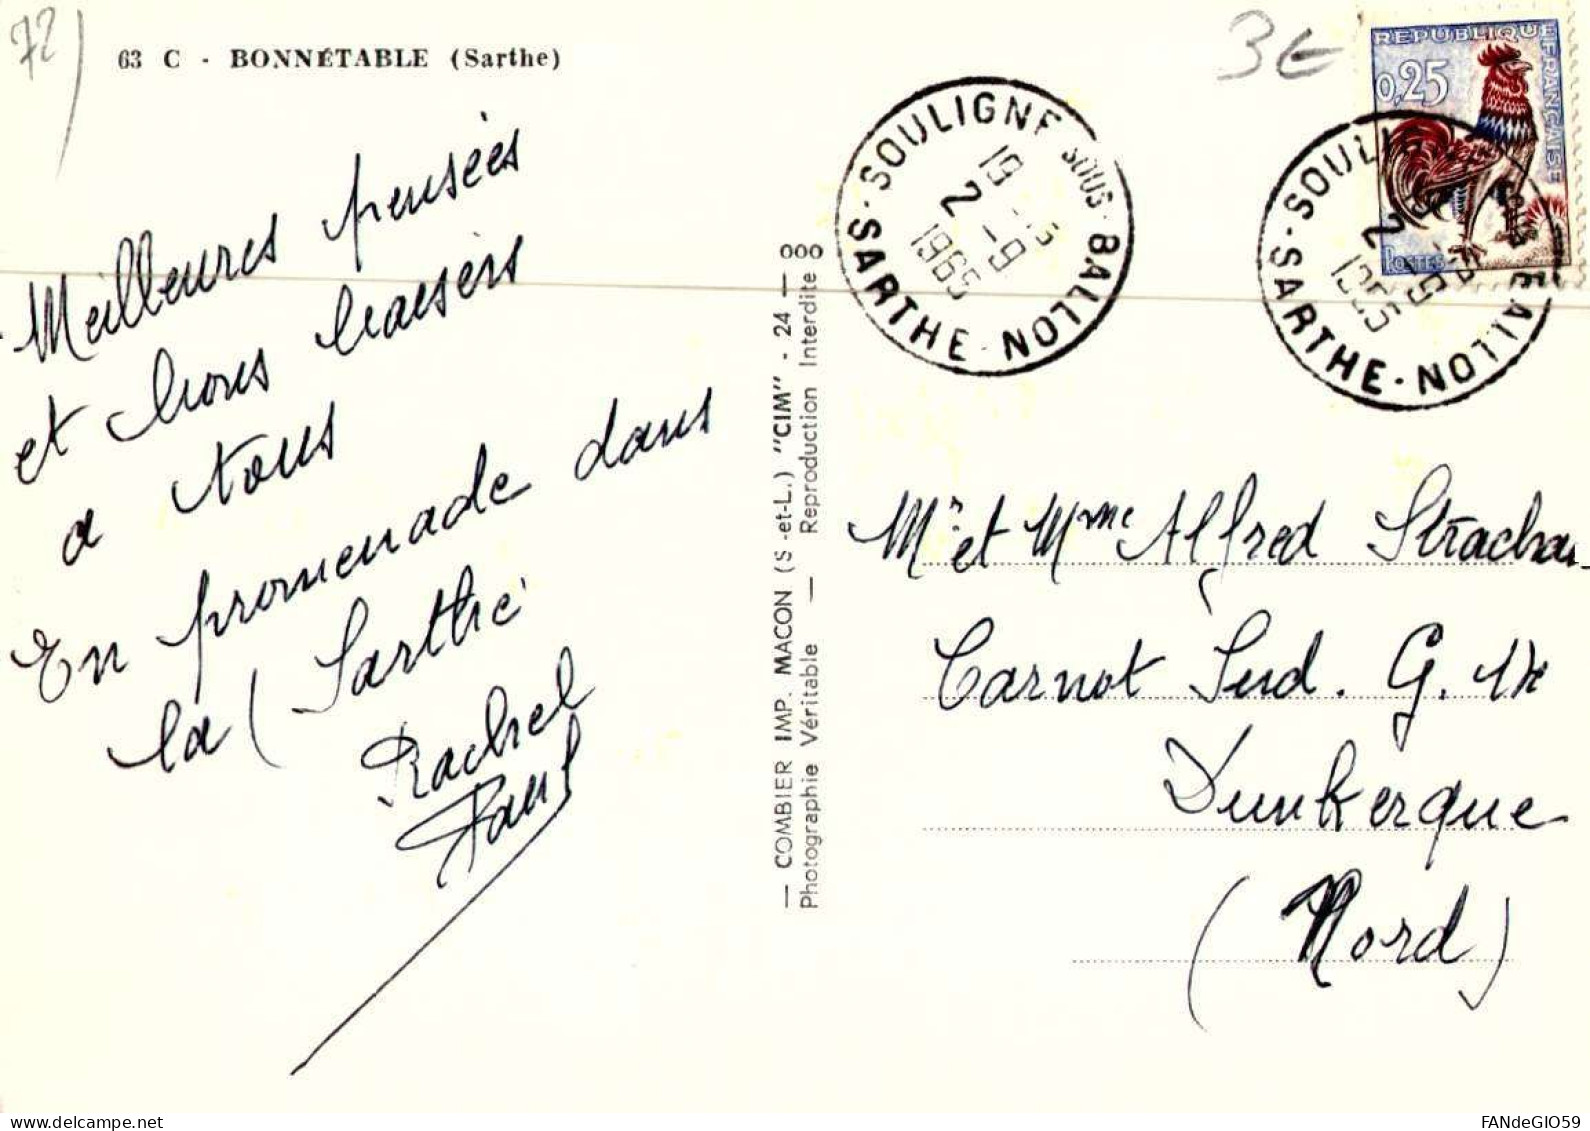 72
63 C - BONNÉTABLE (Sarthe)
3€
REPUBLIQUE FRANÇAISE
0,25
POSTES
SOULIGNE SOUS - BALLON - SARTHE
19 - 15
2 - 9
1965
SOULIGNE SOUS BALLON - SARTHE
2 - 9
1965
Meilleures pensées
et bons baisers
a tous
En promenade dans
la (Sarthe
Rachel
Paul
— COMBIER IMP. MACON (S.-et-L.) "CIM" - 24 —
Photographie Véritable — Reproduction Interdite
Mr et Mme Alfred
Carnot Sud. G.
Dunkerque
(Nord)
FANdeGIO59